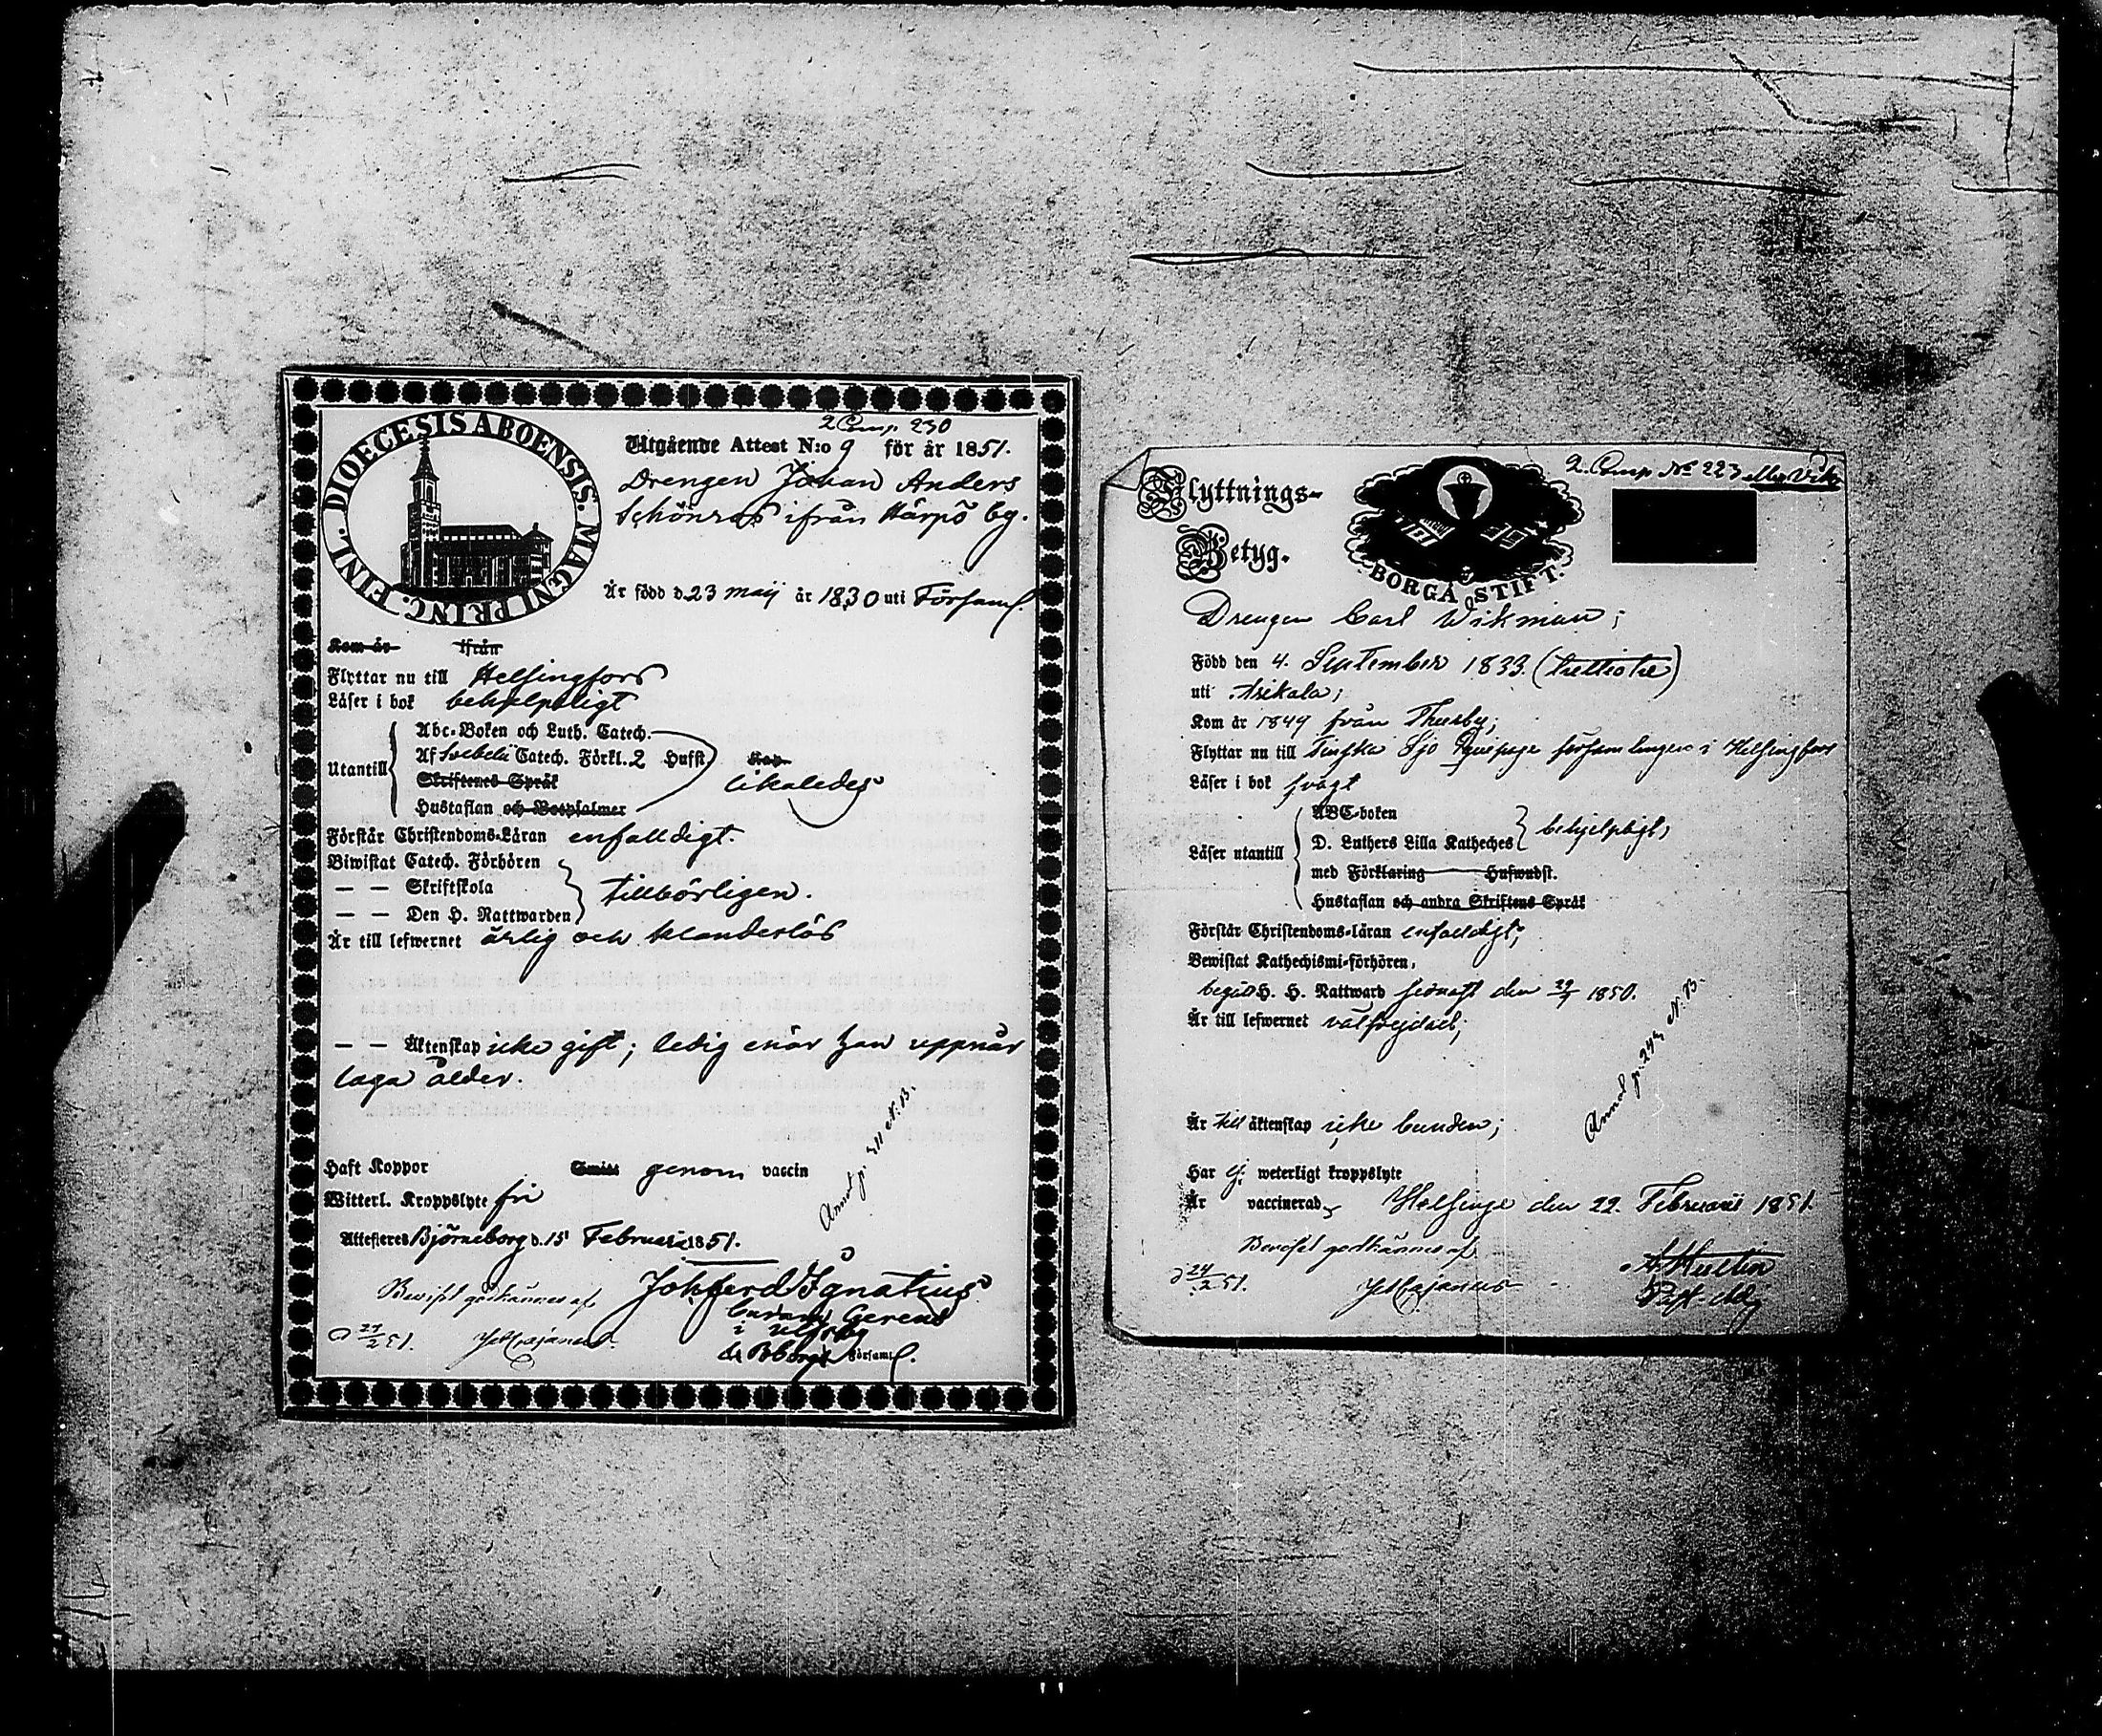 2 Comp. 230
DIOECESIS ABOENSIS. MAGNI PRINC. FINL.
Utgående Attest N:o 9 för år 1851.
Drengen Johan Anders
ifrån Härpö by.
Är född d. 23 maij år 1830 uti Församl.
Kom år ifrån
Flyttar nu till Helsingfors
Läser i bok behjelpeligt
Abc-Boken och Luth. Catech.
Utantill Af Svebelii Catech. Förkl. 2 Hufst. Kap.
likaledes
Skriftenes Språk
Hustaflan och Botpsalmer
Förstår Christendoms-Läran enfalldigt.
Biwistat Catech. Förhören
— — Skriftskola tillbörligen.
— — Den H. Nattwarden
Är till lefwernet ärlig och klanderlös
— — Äktenskap icke gift; ledig enär han uppnår
laga ålder.
Haft Koppor Smitt genom vaccin
Witterl. Kroppslyte fri
Annot. p. 311 N. 13.
Attesteres Björneborg d. 15 Februarii 1851.
Bewiset godkännes af Joh. Ferd. Ignatius
Gerens
i Ulfsby
d 21/2 51.
Församl.
2. Comp No 223
Flyttnings-
Betyg.
BORGÅ STIFT.
Drengen Carl Wikman;
Född den 4. September 1833. (trettiotre)
uti Asikala;
Kom år 1849 från Thusby;
Flyttar nu till Finska Sjö Equipage församlingen i Helsingfors
Läser i bok svagt
ABC-boken
Läser utantill D. Luthers Lilla Katheches behjelpligt,
med Förklaring Hufwudst.
Hustaflan och andra Skriftens Språk
Förstår Christendoms-läran enfaldigt,
Bewistat Kathechismi-förhören,
begått H. H. Nattward senast den 29/9 1850.
Är till lefwernet välfrejdad;
Annot. p. 243 N. 13.
Är till äktenskap icke bunden;
Har ej weterligt kroppslyte
Är vaccinerad, Helsinge den 22. Februarii 1851.
Beviset godkännes af
d 24/2 51.